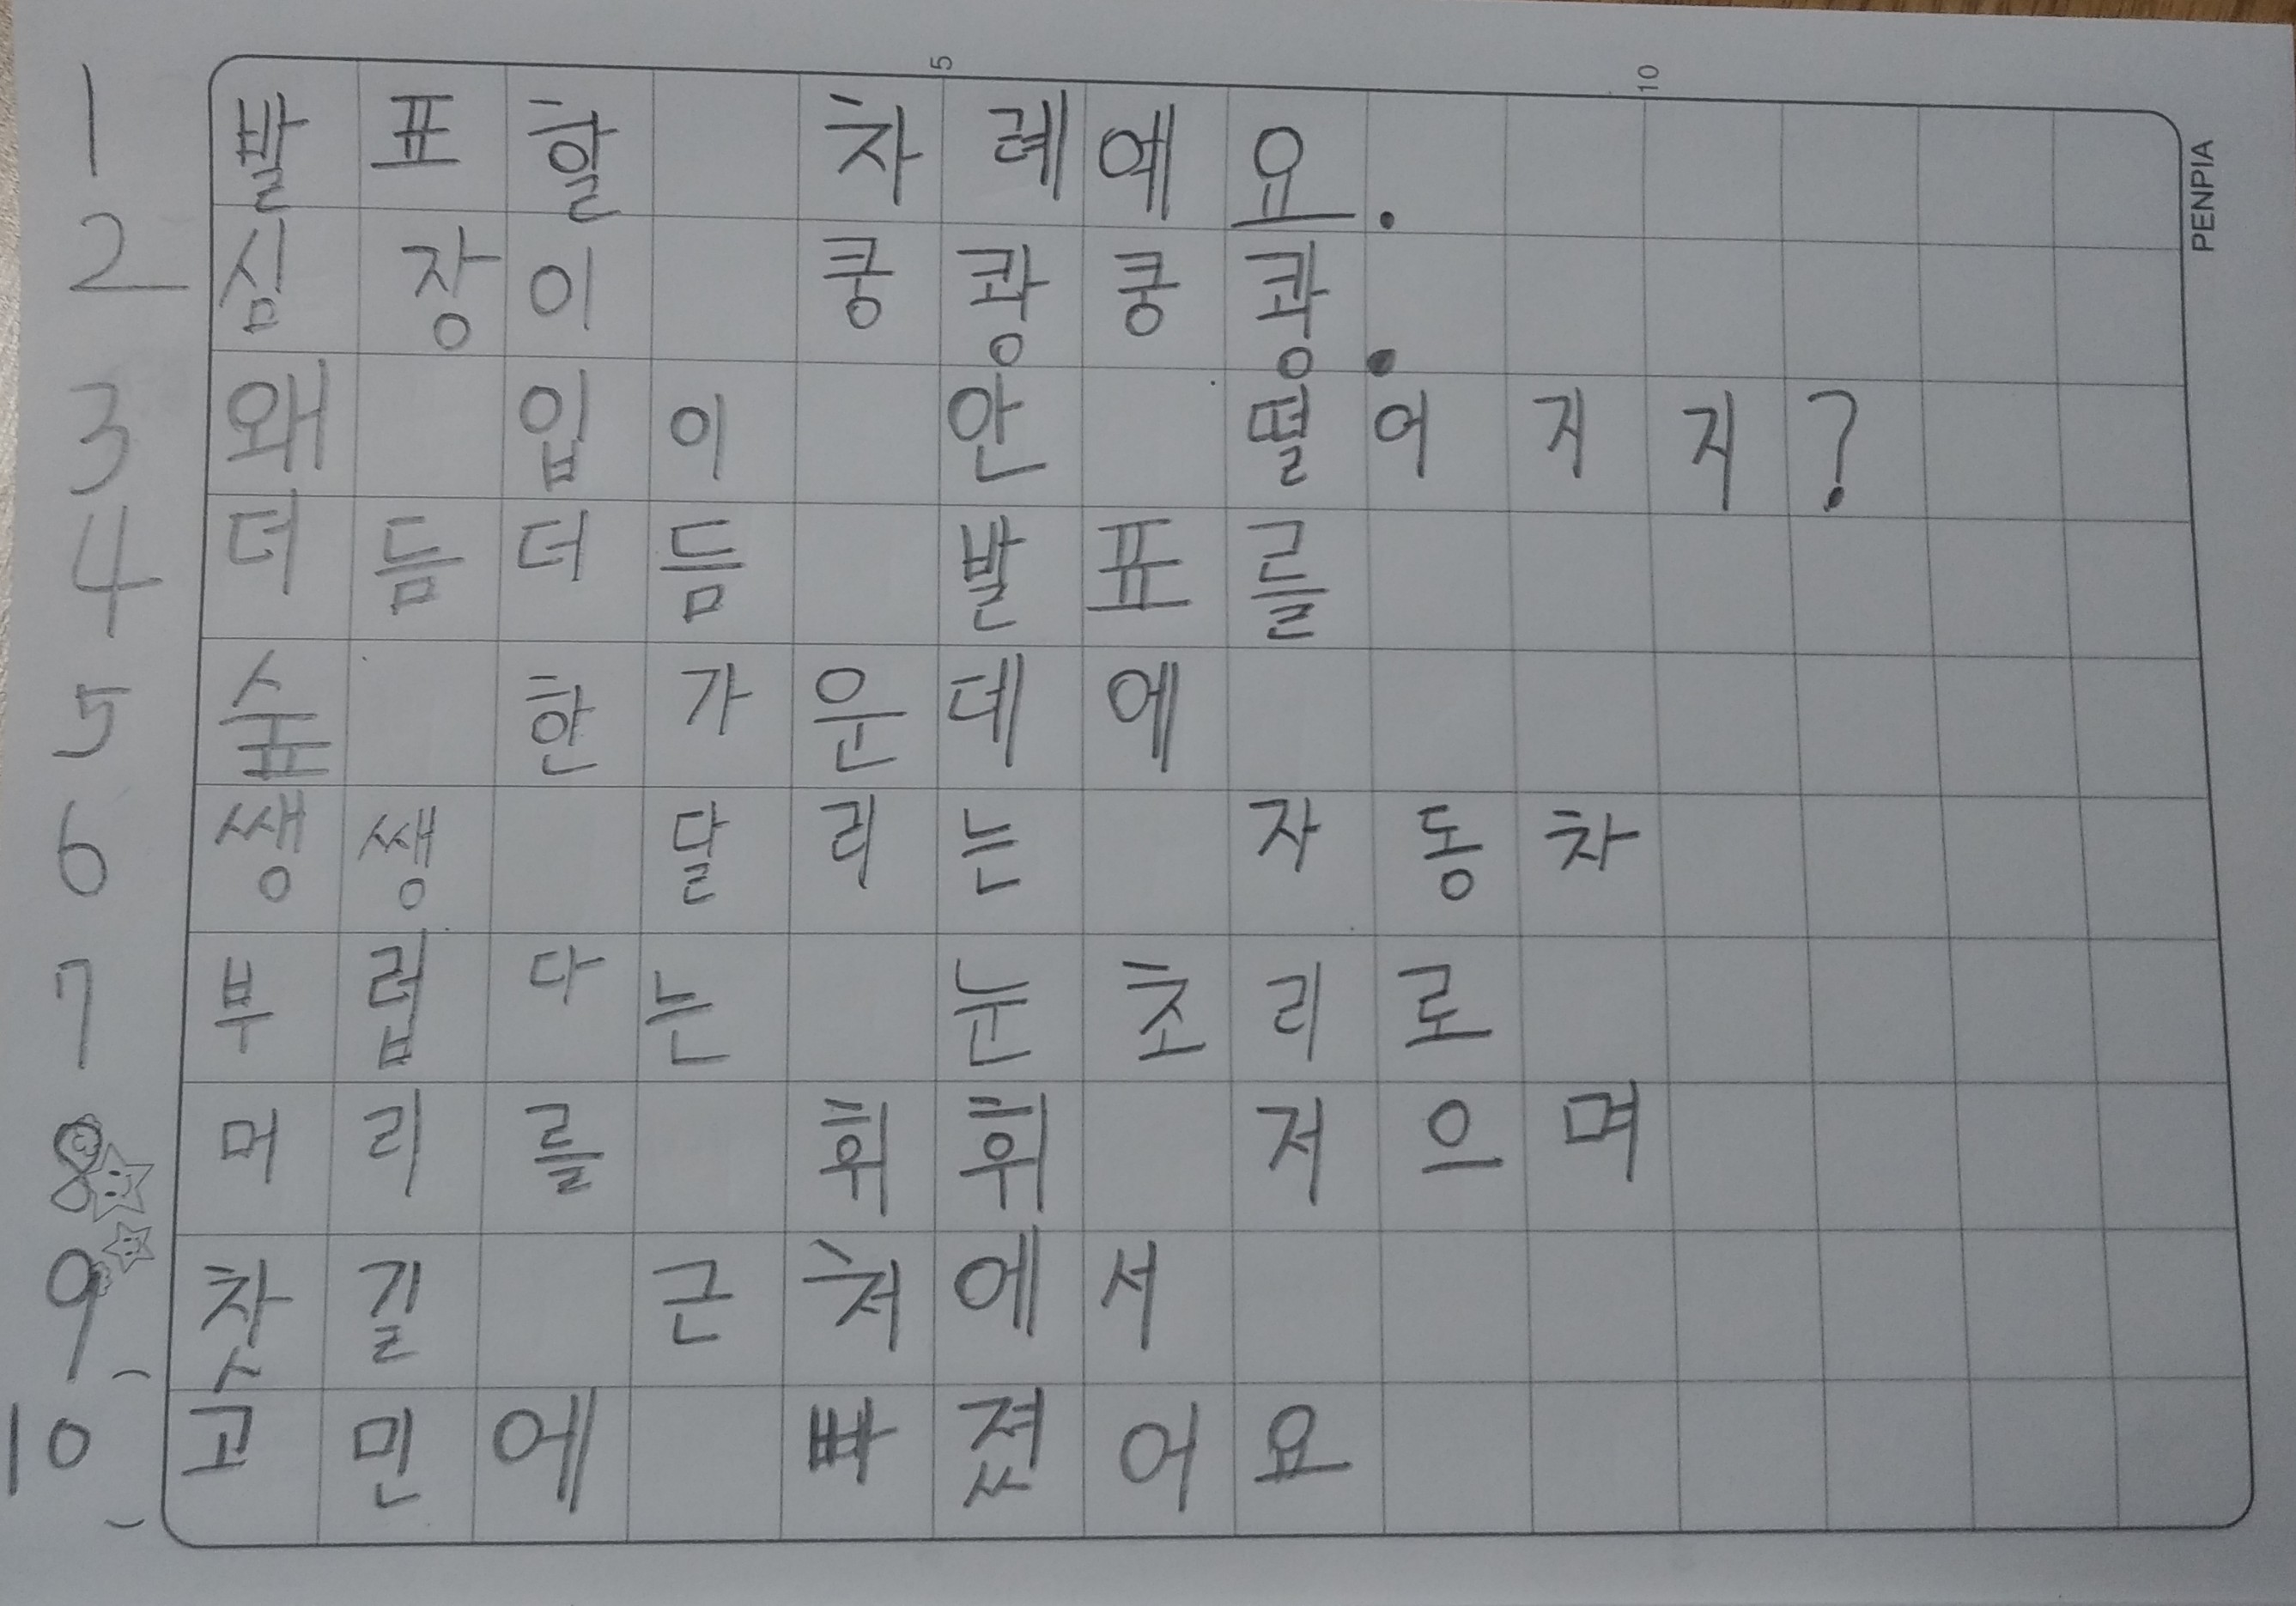 5 10
PENPIA
1 발표할 차례예요.
2 심장이 쿵쾅쿵쾅.
3 왜 입이 안 떨어지지?
4 더듬더듬 발표를
5 숲 한가운데에
6 쌩쌩 달리는 자동차
7 부럽다는 눈초리로
8 머리를 휘휘 저으며
9 찻길 근처에서
10 고민에 빠졌어요